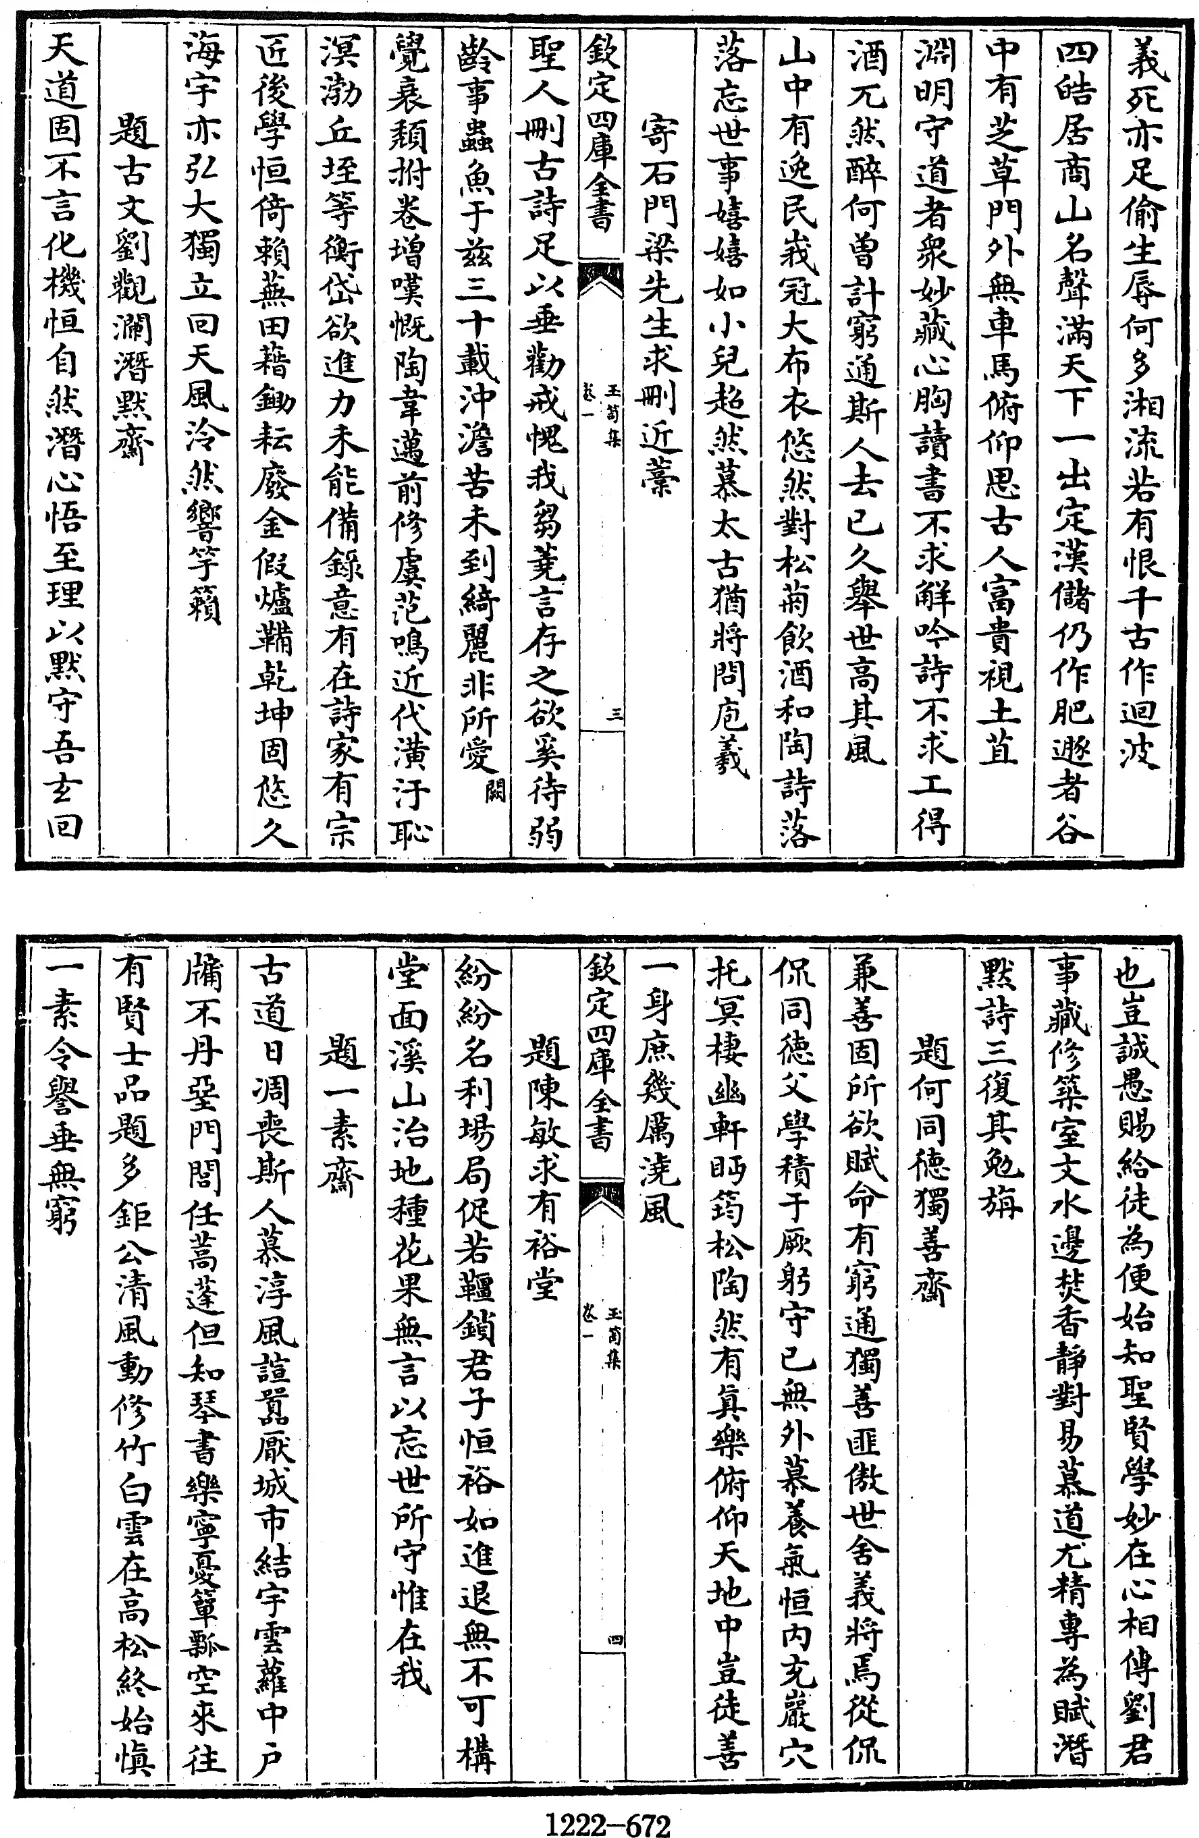 義死亦足偷生辱何多湘流若有恨千古作迴波
四皓居商山名聲滿天下一出定漢儲仍作肥遯者谷
中有芝草門外無車馬俯仰思古人富貴視土苴
淵明守道者衆妙藏心胸讀書不求解吟詩不求工得
酒兀然醉何曾計窮通斯人去已久舉世高其風
山中有逸民峩冠大布衣悠然對松菊飲酒和陶詩落
落忘世事嬉嬉如小兒超然慕太古猶將問庖羲
寄石門梁先生求刪近藳
欽定四庫全書
玉笥集
卷一
三
聖人刪古詩足以垂勸戒愧我芻蕘言存之欲奚待弱
齡事蟲魚于兹三十載沖澹苦未到綺麗非所愛闕
覺衰頹拊卷增嘆慨陶韋邁前修虞范鳴近代潢汙恥
溟渤丘垤等衡岱欲進力未能備錄意有在詩家有宗
匠後學恒倚賴蕪田藉鋤耘廢金假爐鞴乾坤固悠久
海宇亦弘大獨立回天風泠然響竽籟
題古文劉觀瀾潛默齋
天道固不言化機恒自然潛心悟至理以默守吾玄回
也豈誠愚賜給徒為便始知聖賢學妙在心相傳劉君
事藏修築室文水邊焚香靜對易慕道尤精專為賦潛
默詩三復其勉旃
題何同德獨善齋
兼善固所欲賦命有窮通獨善匪傲世舍義將焉從侃
侃同德父學積于厥躬守已無外慕養氣恒内充巖穴
托冥棲幽軒眄筠松陶然有真樂俯仰天地中豈徒善
一身庶幾厲澆風
欽定四庫全書
玉笥集
卷一
四
題陳敏求有裕堂
紛紛名利場局促若韁鎖君子恒裕如進退無不可構
堂面溪山治地種花果無言以忘世所守惟在我
題一素齋
古道日凋喪斯人慕淳風諠囂厭城市結宇雲蘿中户
牖不丹堊門閭任蒿蓬但知琴書樂寧憂簞瓢空來往
有賢士品題多鉅公清風動修竹白雲在高松終始慎
一素令譽垂無窮
1222-672